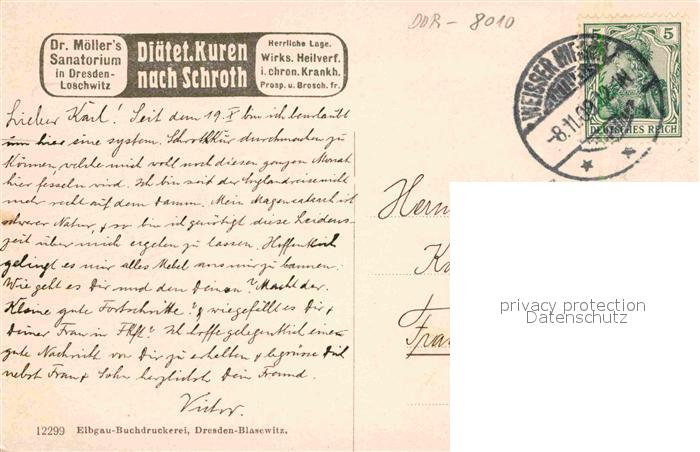 DDR - 8010
Dr. Möller's
Sanatorium
in Dresden-
Loschwitz
Diätet. Kuren
nach Schroth
Herrliche Lage.
Wirks. Heilverf.
i. chron. Krankh.
Prosp. u. Brosch. fr.
WEISSER HIRSCH
-8.11.09
5 5
DEUTSCHES REICH
Lieber Karl! Seit dem 19.X bin ich beurlaubt
um hier eine system. Schrothkur durchmachen zu
können, welche mich wohl noch diesen ganzen Monat
hier fesseln wird. Ich bin seit der Englandreise nicht
mehr recht auf dem Damm. Mein Magencatarrh ist
schwerer Natur, & so bin ich genötigt diese Leidens-
zeit über mich ergehen zu lassen. Hoffentlich
gelingt es mir alles Uebel aus mir zu bannen.
Wie geht es Dir und den Deinen? Macht der
Kleine gute Fortschritte? & wie gefällt es Dir &
Deiner Frau in Ffft? Ich hoffe gelegentlich eine
gute Nachricht von Dir zu erhalten & begrüsse Dich
nebst Frau & Sohn herzlichst Dein Freund
Victor.
Herrn
Fra
privacy protection
Datenschutz
12299 Elbgau-Buchdruckerei, Dresden-Blasewitz.